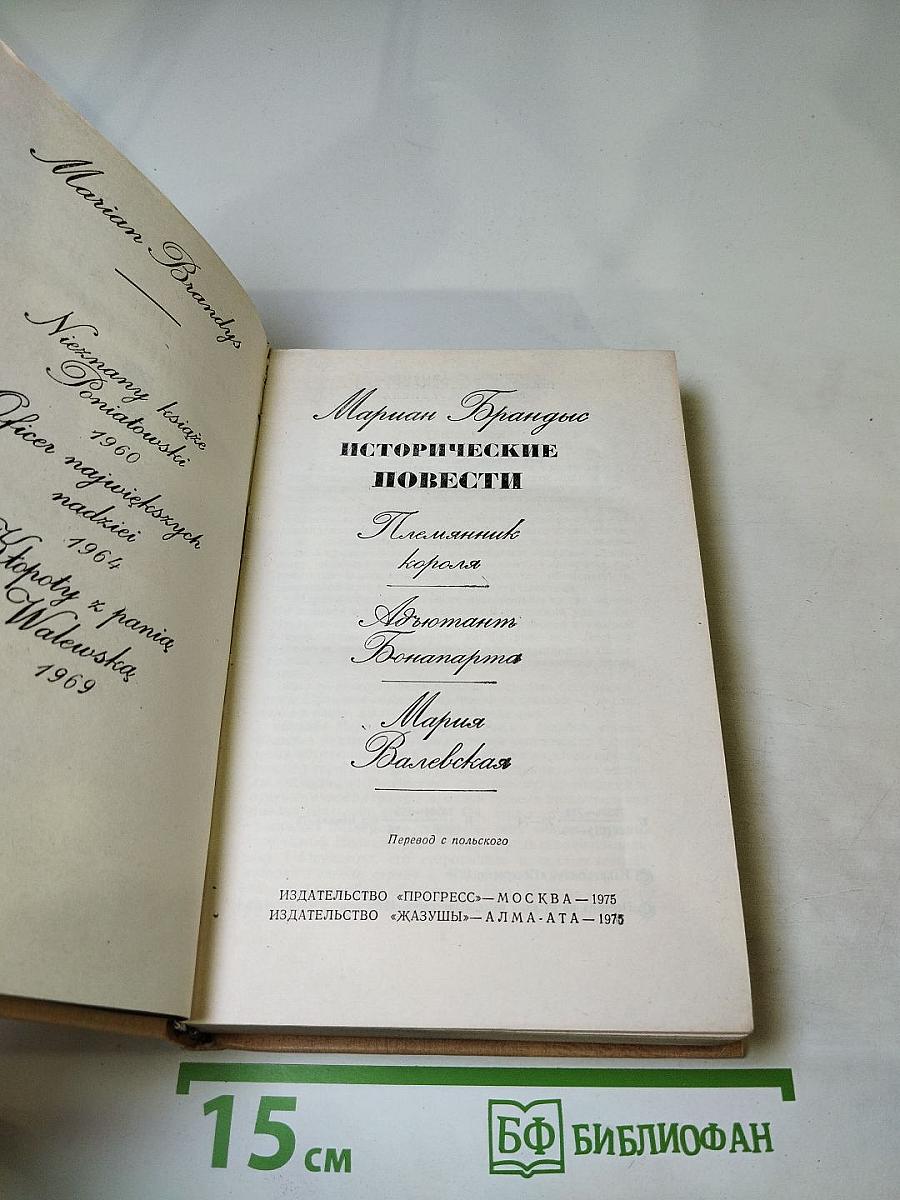 Marian Brandys
Nieznany książe
Poniatowski
1960
Oficer największych
nadziei
1964
Kłopoty z panią
Walewską
1969
Мариан Брандыс
ИСТОРИЧЕСКИЕ
ПОВЕСТИ
Племянник
короля
Адъютант
Бонапарта
Мария
Валевская
Перевод с польского
ИЗДАТЕЛЬСТВО «ПРОГРЕСС»—МОСКВА—1975
ИЗДАТЕЛЬСТВО «ЖАЗУШЫ»—АЛМА-АТА—1975
15 см
БФ БИБЛИОФАН